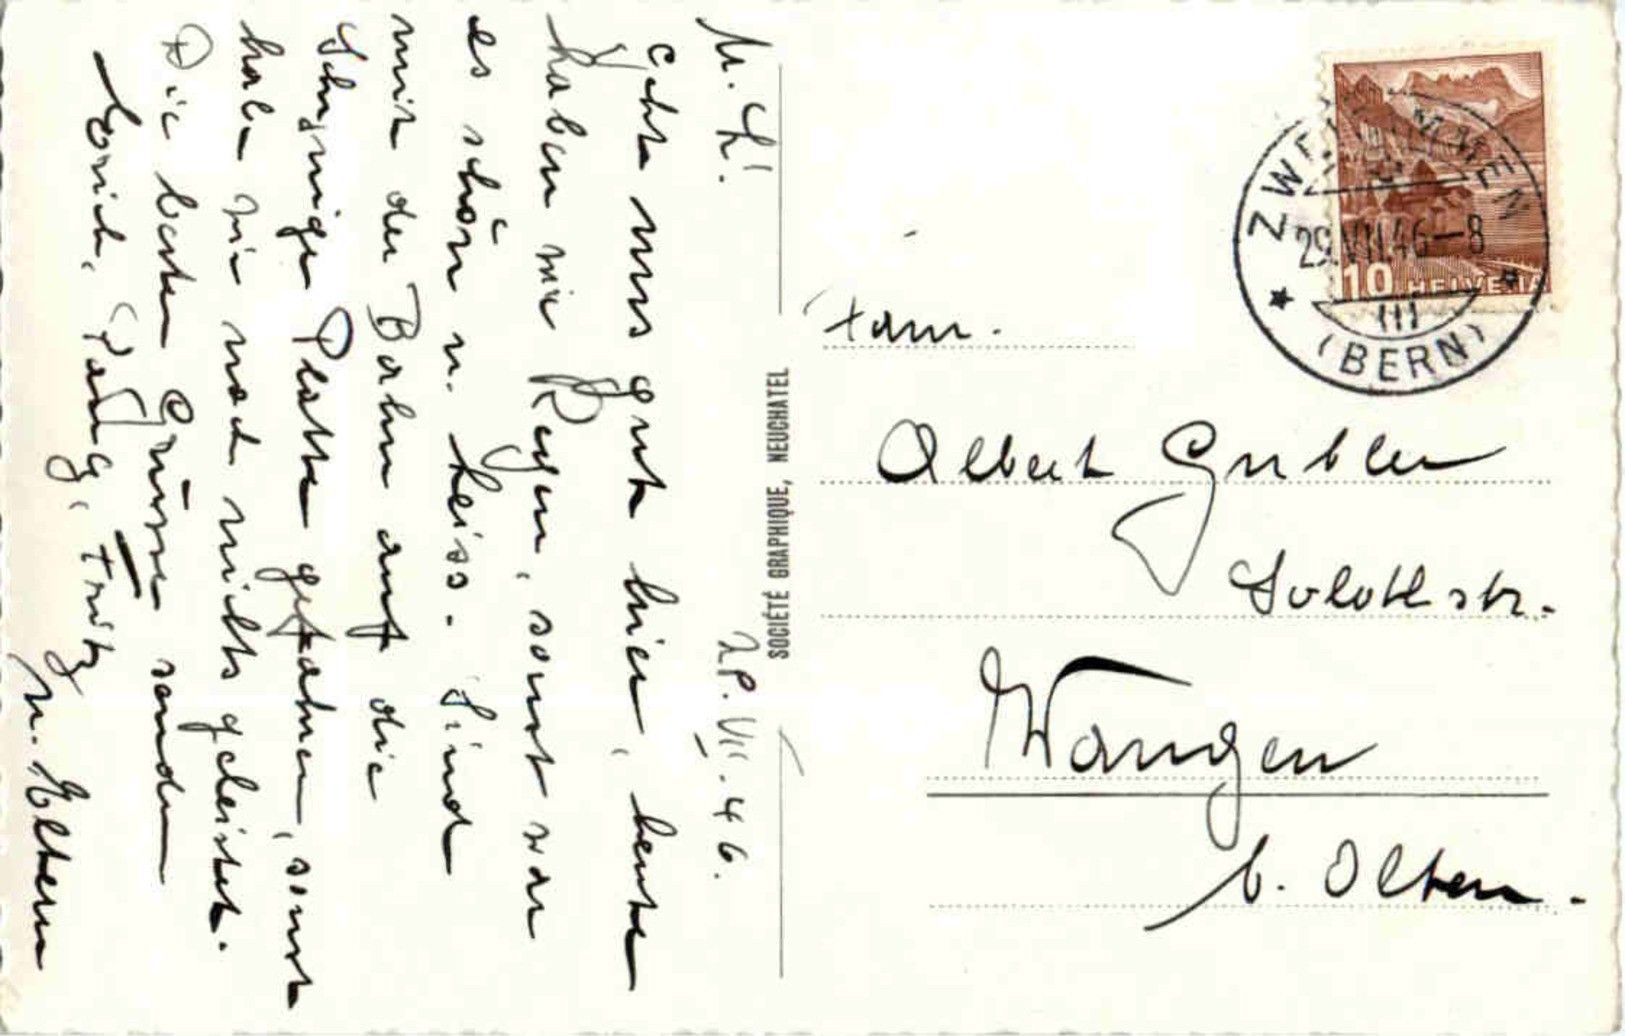 M. L!
28.VII.46.
Geht uns gut hier, heute
haben wir Regen, sonst war
es schön u. heiss. Sind
mit der Bahn auf die
Schynige Platte gefahren, sonst
haben wir noch nichts geleistet.
Die besten Grüsse senden
Erich, Fritz
u. Eltern
SOCIÉTÉ GRAPHIQUE, NEUCHATEL
ZWEISIMMEN
29.VII.46-8
III
(BERN)
10 HELVETIA
Fam.
Albert Gubler
Solothstr.
Wangen
b. Olten.